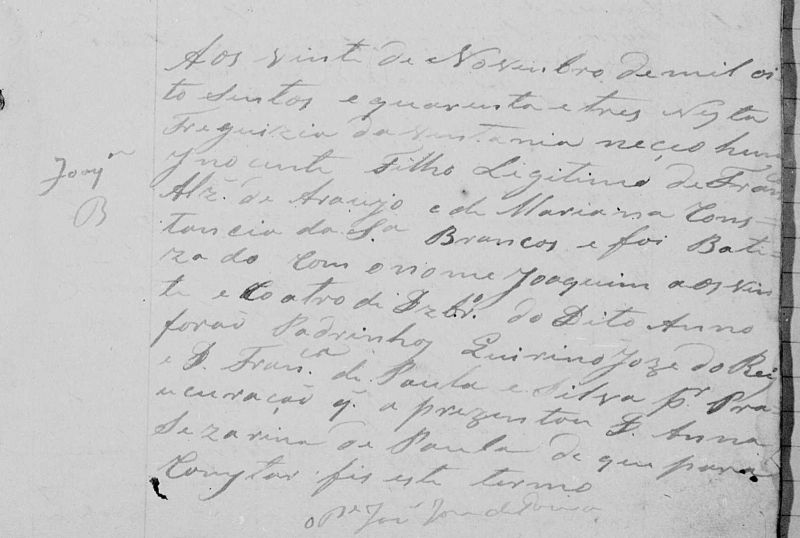 Aos vinte de Novenbro de mil oi
to sentos e quarenta e tres Nesta
Freguizia da ventania neçeo hum
Joaqm
Ynocente Filho Ligitimo de Fran
B
Alz. de Araujo e de Mariana Cons-
tancia da Sa Brancos e foi Bati-
zado Com o nome Joaquim aos vin
te e Coatro de Dzbro. do Dito Anno
forão Padrinhos Quirino Joze do Reis
e D. Franca. de Paula e Silva pr. Pro-
curação q. a prezentou D. Anna
Sezarina de Paula de que para
Constar fis este termo
o Pe